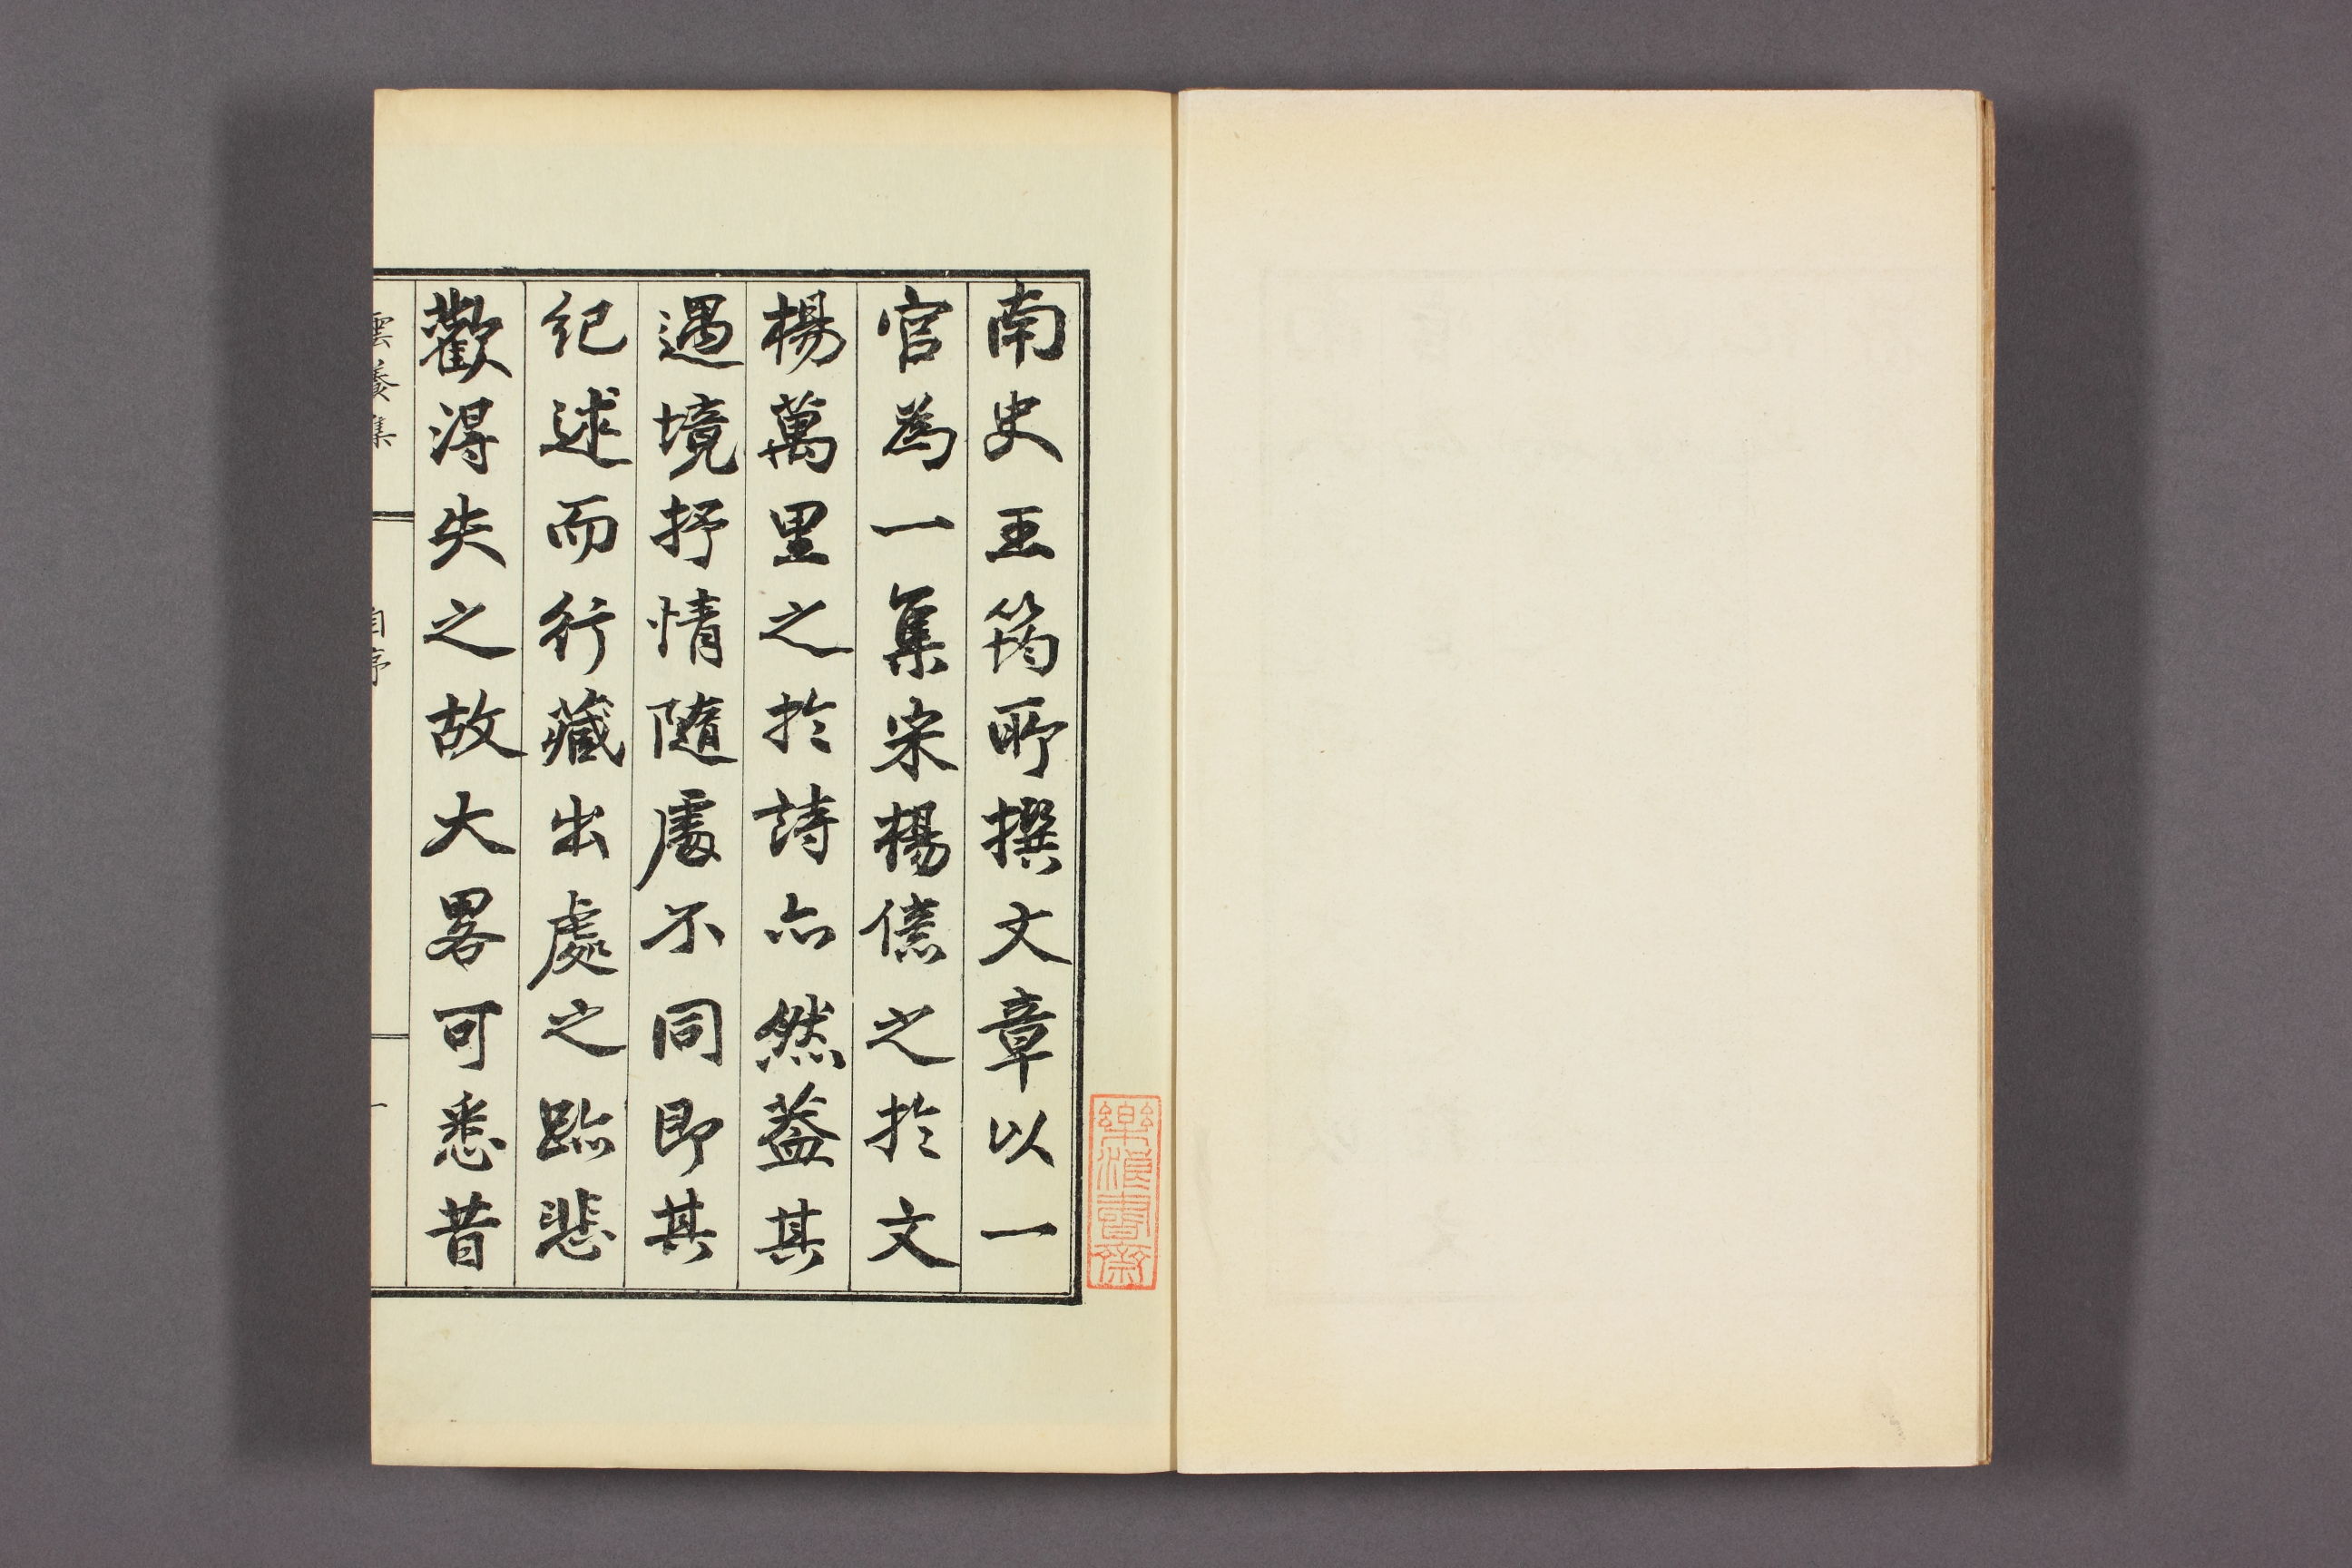 南史王筠所撰文章以一
官為一集宋楊億之於文
楊萬里之於詩亦然蓋其
遇境抒情隨處不同即其
紀述而行藏出處之跡悲
歡得失之故大畧可悉昔
雲養集
自序
一